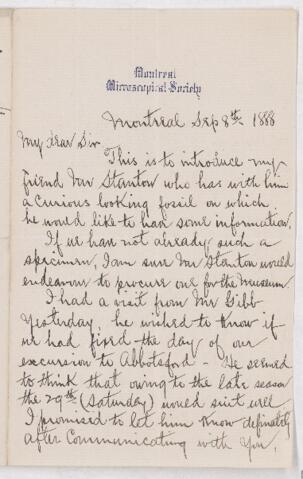 Montreal
Microscopical Society
Montreal Sep 8th 1888
My dear Sir
This is to introduce my
friend Mr Stanton who has with him
a curious looking fosil on which
he would like to have some information,
If we have not already, such a
specimen, I am sure Mr Stanton would
endeavor to procure one for the museum.
I had a visit from Mr Gibb
Yesterday, he wished to know if
we had fixed the day of our
excursion to Abbotsford - He seemed
to think that owing to the late season
the 29th (Saturday) would suit well
I promised to let him know definately
after communicating with you,